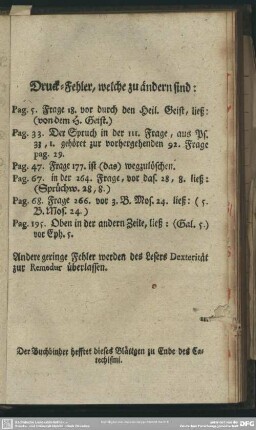 Druck-Fehler, welche zu ändern sind:
Pag. 5. Frage 18. vor durch den Heil. Geist, ließ:
(von dem H. Geist.)
Pag. 33. Der Spruch in der 111. Frage, aus Ps.
33, 1. gehöret zur vorhergehenden 92. Frage
pag. 29.
Pag. 47. Frage 177. ist (das) wegzulöschen.
Pag. 67. in der 264. Frage, vor das. 28, 8. ließ:
(Sprüchw. 28, 8.)
Pag. 68. Frage 266. vor 3. B. Mos. 24. ließ: (5.
B. Mos. 24.)
Pag. 195. Oben in der andern Zeile, ließ: (Gal. 5.)
vor Eph. 5.
Andere geringe Fehler werden des Lesers Dexterität
zur Remedur überlassen.
Der Buchbinder hefftet dieses Blättgen zu Ende des Ca-
techismi.
DFG